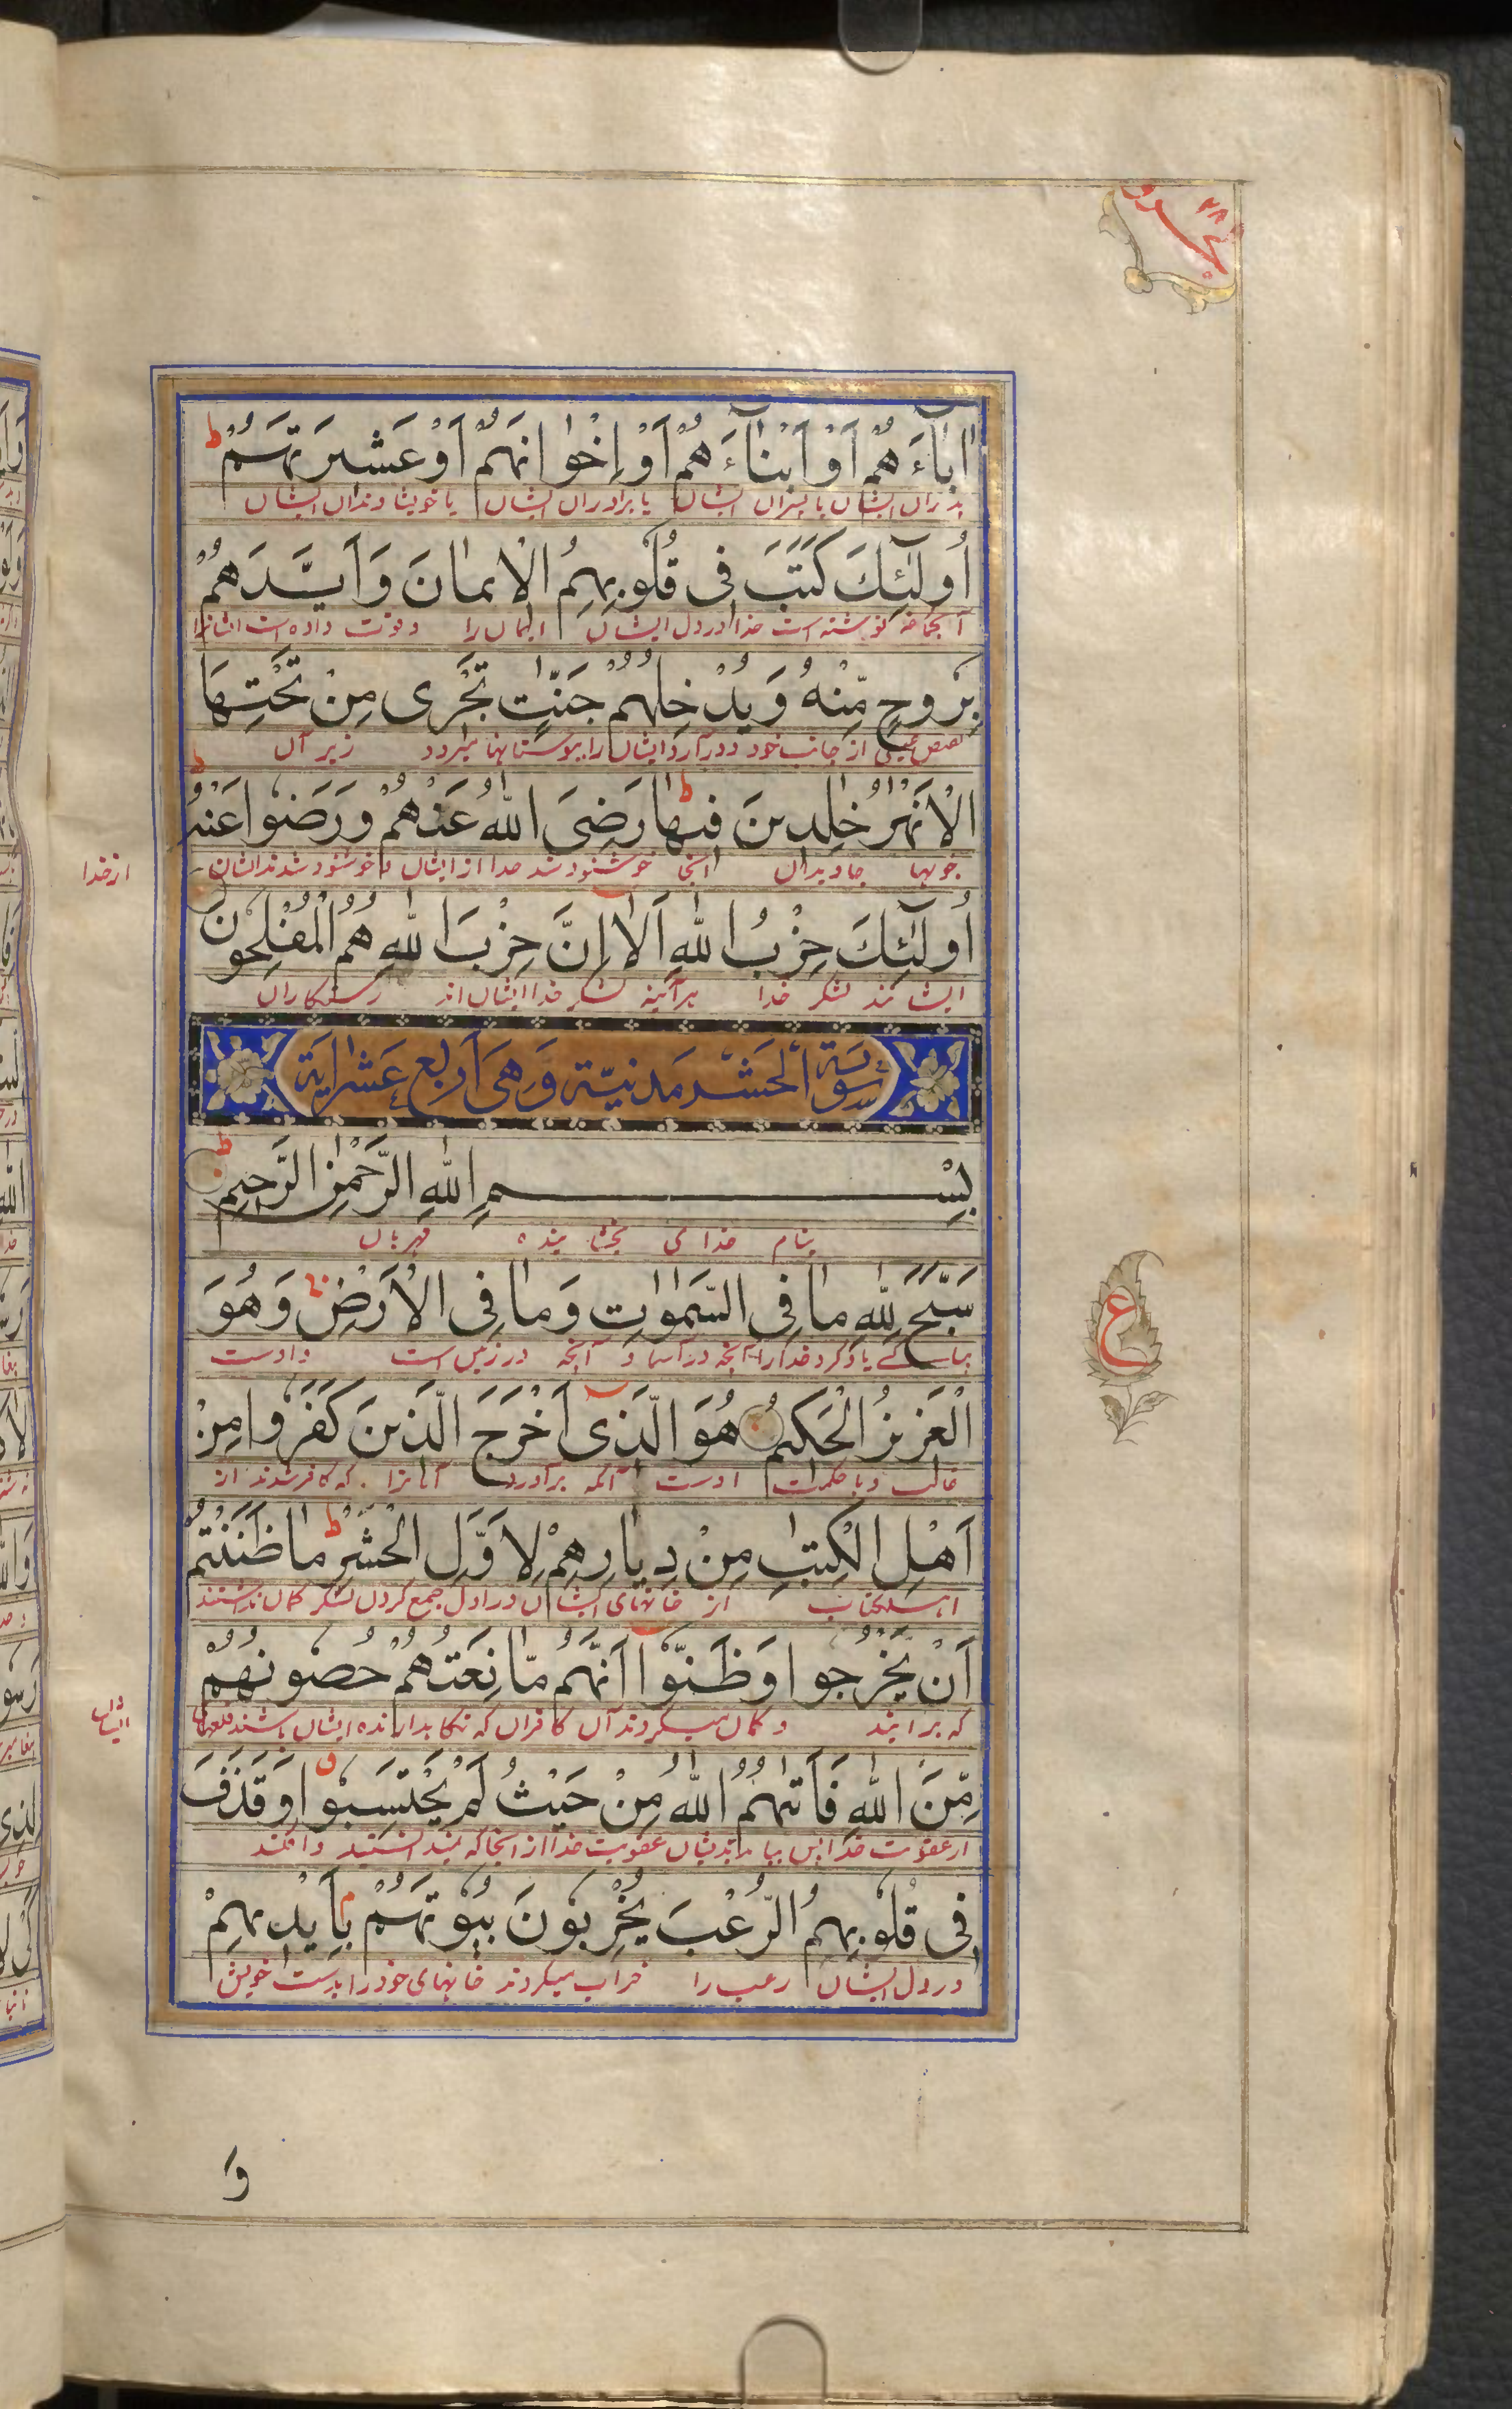 اٰبَآءَهُمْ اَوْ اَبْنَآءَهُمْ اَوْ اِخْوَانَهُمْ اَوْ عَشِيرَتَهُمْ ط
پدران ایشان یا پسران ایشان یا برادران ایشان یا خویشاوندان ایشان
اُولٰٓئِكَ كَتَبَ فِى قُلُوبِهِمُ الْاِيمَانَ وَاَيَّدَهُمْ
نوشته است خدا در دل ایشان ایمان را و قوت داده است ایشانرا
بِرُوحٍ مِّنْهُ وَيُدْخِلُهُمْ جَنّٰتٍ تَجْرِى مِنْ تَحْتِهَا
بفیض غیبی از جانب خود و درآرد ایشان را ببوستانها میرود زیر آن
الْاَنْهٰرُ خٰلِدِينَ فِيهَا ط رَضِىَ اللّٰهُ عَنْهُمْ وَرَضُوا عَنْهُ ط
جویها جاویدان آنجا خوشنود شد خدا از ایشان و خوشنود شدند ایشان
از خدا
اُولٰٓئِكَ حِزْبُ اللّٰهِ اَلَا اِنَّ حِزْبَ اللّٰهِ هُمُ الْمُفْلِحُونَ
ایشانند لشکر خدا هرآئینه لشکر خدا ایشان اند رستکاران
سُورَة الْحَشْر مَدَنِيَّة وَهِىَ اَرْبَع عِشْر اٰيَة
بِسْمِ اللّٰهِ الرَّحْمٰنِ الرَّحِيمِ ط
بنام خدای بخشاینده مهربان
سَبَّحَ لِلّٰهِ مَا فِى السَّمٰوَاتِ وَمَا فِى الْاَرْضِ وَهُوَ
یاد کرد خدا را آنچه در آسما و آنچه در زمین است و اوست
الْعَزِيزُ الْحَكِيمُ هُوَ الَّذِى اَخْرَجَ الَّذِينَ كَفَرُوا مِنْ
غالب و با حکمت اوست آنکه برآورد آنانرا که کافر شدند از
اَهْلِ الْكِتٰبِ مِنْ دِيَارِهِمْ لِاَوَّلِ الْحَشْرِ ط مَا ظَنَنْتُمْ
اهل کتاب از خانهای ایشان در اول جمع کردن لشکر گمان نداشتند
اَنْ يَّخْرُجُوا وَظَنُّوا اَنَّهُمْ مَّانِعَتُهُمْ حُصُونُهُمْ
که برآیند و گمان میکردند آن کافران که نگاهدارنده ایشان باشند قلعهای
ایشان
مِّنَ اللّٰهِ فَاَتٰهُمُ اللّٰهُ مِنْ حَيْثُ لَمْ يَحْتَسِبُوا وَقَذَفَ
از عقوبت خدا پس بیامد بدیشان عقوبت خدا از آنجا که نمیدانستند و افکند
فِى قُلُوبِهِمُ الرُّعْبَ يُخْرِبُونَ بُيُوتَهُمْ بِاَيْدِيهِمْ
در دل ایشان رعب را خراب میکردند خانهای خود را بدست خویش
ع
وَ